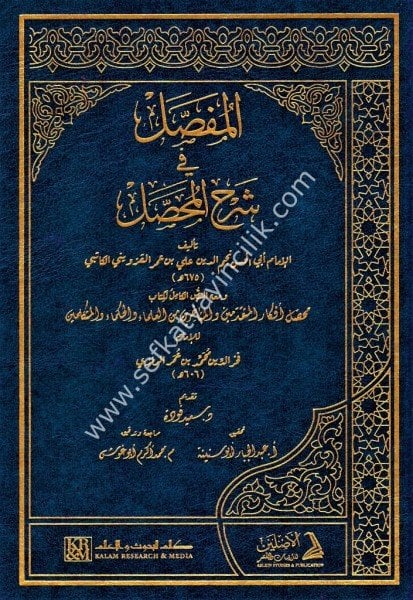 المفصل
في
شرح المحصل
تأليف
الإمام أبي الحسن نجم الدين علي بن عمر القزويني الكاتبي
(٦٧٥هـ)
ومعه النص الكامل لكتاب
محصل أفكار المتقدمين والمتأخرين من العلماء والحكماء والمتكلمين
للإمام
فخر الدين محمد بن عمر الرازي
(٦٠٦هـ)
تقديم
د. سعيد فودة
تحقيق
مراجعة وتدقيق
أ. عبد الجبار أبو سنينة
م. محمد أكرم أبو غوش
www.sefkatyayincilik.com
كلام للبحوث والإعلام
KALAM RESEARCH & MEDIA
K R & M
الأصلين
للدراسات والنشر
ASLEIN STUDIES & PUBLICATION